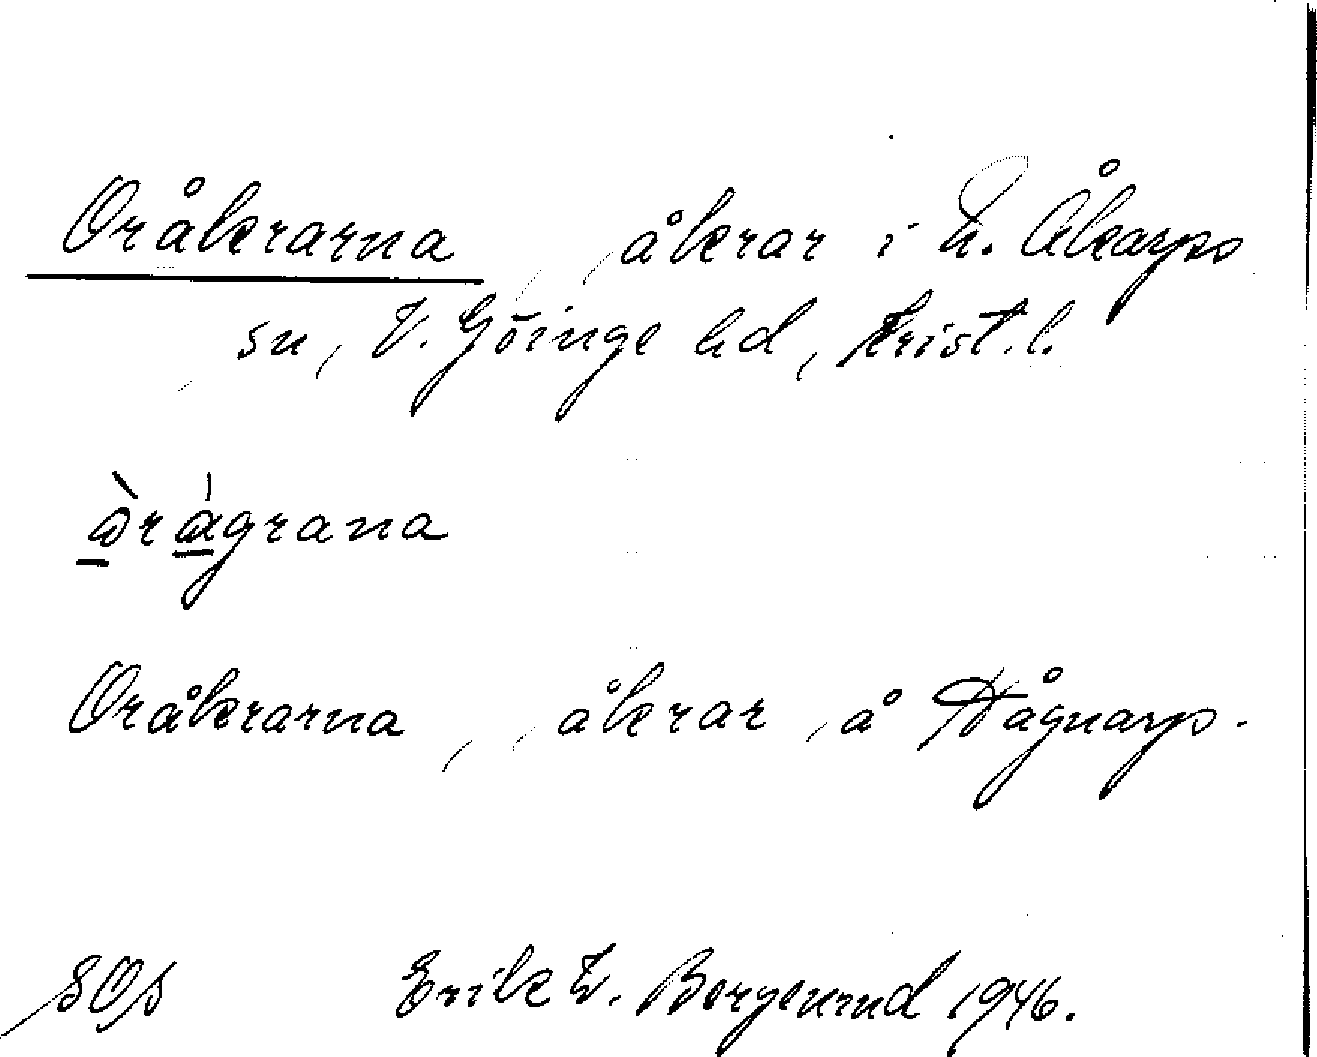 Oråkrarna, åkrar i N. Åkarps
sn, V. Göinge hd, Krist. l.
òrágrana
Oråkrarna, åkrar, å Hågnarp.
SOS Erik W. Bergelind 1946.